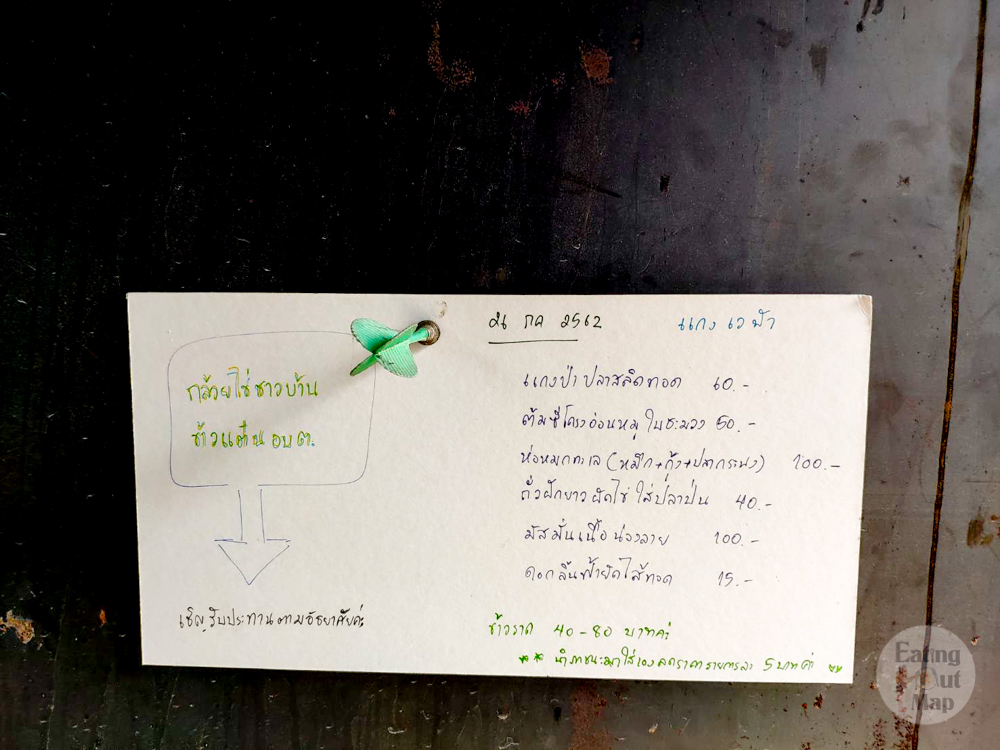 กล้วยไข่ชาวบ้าน
ข้าวแต๋น อบต.
เชิญรับประทานตามอัธยาศัยค่ะ
กค 2562
แกง เวฬา
แกงป่า ปลาสลิดทอด 60.-
ต้มซี่โครงอ่อนหมู ใบชะมวง 50.-
ห่อหมกทะเล (หมึก+กุ้ง+ปลากระพง) 100.-
ถั่วฝักยาวผัดไข่ ใส่ปลาป่น 40.-
มัสมั่นเนื้อน่องลาย 100.-
ดอกลิ้นฟ้ายัดไส้ทอด 15.-
ข้าวราด 40-80 บาทค่ะ
** นำภาชนะมาใส่เองลดราคารายการละ 5 บาทค่ะ **
Eating Out Map